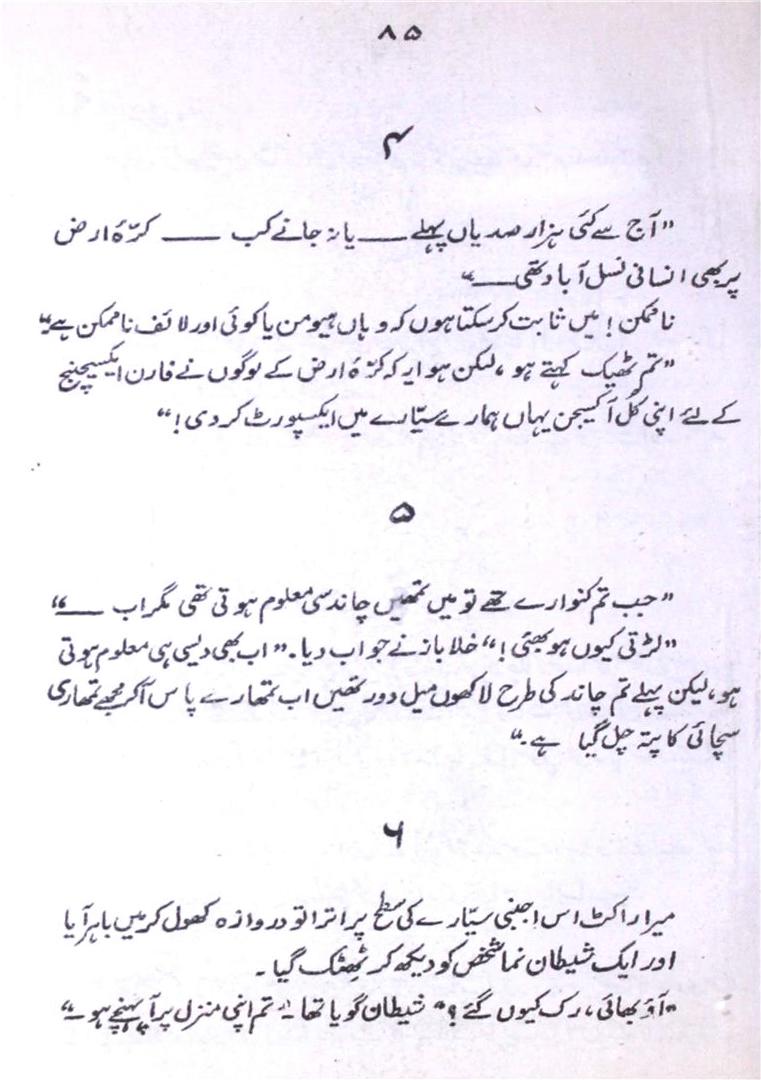 ۸۵
۴
”آج سے کئی ہزار صدیاں پہلے ــــ یا نہ جانے کب ــــ کرّۂ ارض
پر بھی انسانی نسل آباد تھی ــــ“
ناممکن! میں ثابت کر سکتا ہوں کہ وہاں ہیومن یا کوئی اور لائف ناممکن ہے“
”تم ٹھیک کہتے ہو، لیکن ہوا یہ کہ کرّۂ ارض کے لوگوں نے فارن ایکسچینج
کے لئے اپنی کُل آکسیجن یہاں ہمارے سیّارے میں ایکسپورٹ کر دی!“
۵
”جب تم کنوارے تھے تو میں تمھیں چاند سی معلوم ہوتی تھی مگر اب ــــ“
”لڑتی کیوں ہو بھئی!“ خلا باز نے جواب دیا۔ ”اب بھی ویسی ہی معلوم ہوتی
ہو، لیکن پہلے تم چاند کی طرح لاکھوں میل دور تھیں اب تمھارے پاس آکر مجھے تمھاری
سچائی کا پتہ چل گیا ہے۔“
۶
میرا راکٹ اس اجنبی سیّارے کی سطح پر اترا تو دروازہ کھول کر میں باہر آیا
اور ایک شیطان نما شخص کو دیکھ کر ٹھٹک گیا۔
”آؤ بھائی، رک کیوں گئے؟“ شیطان گویا تھا۔ ”تم اپنی منزل پر آ پہنچے ہو۔“